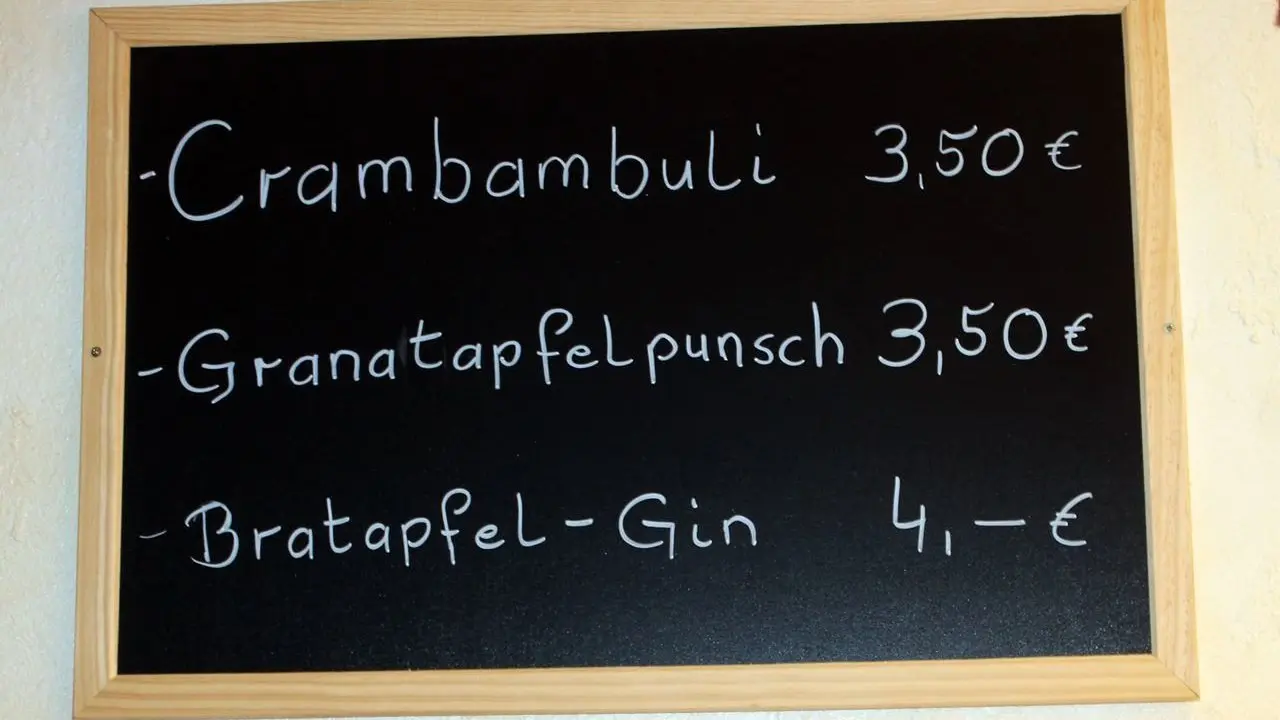 - Crambambuli 3,50 €
- Granatapfelpunsch 3,50 €
- Bratapfel - Gin 4,- €